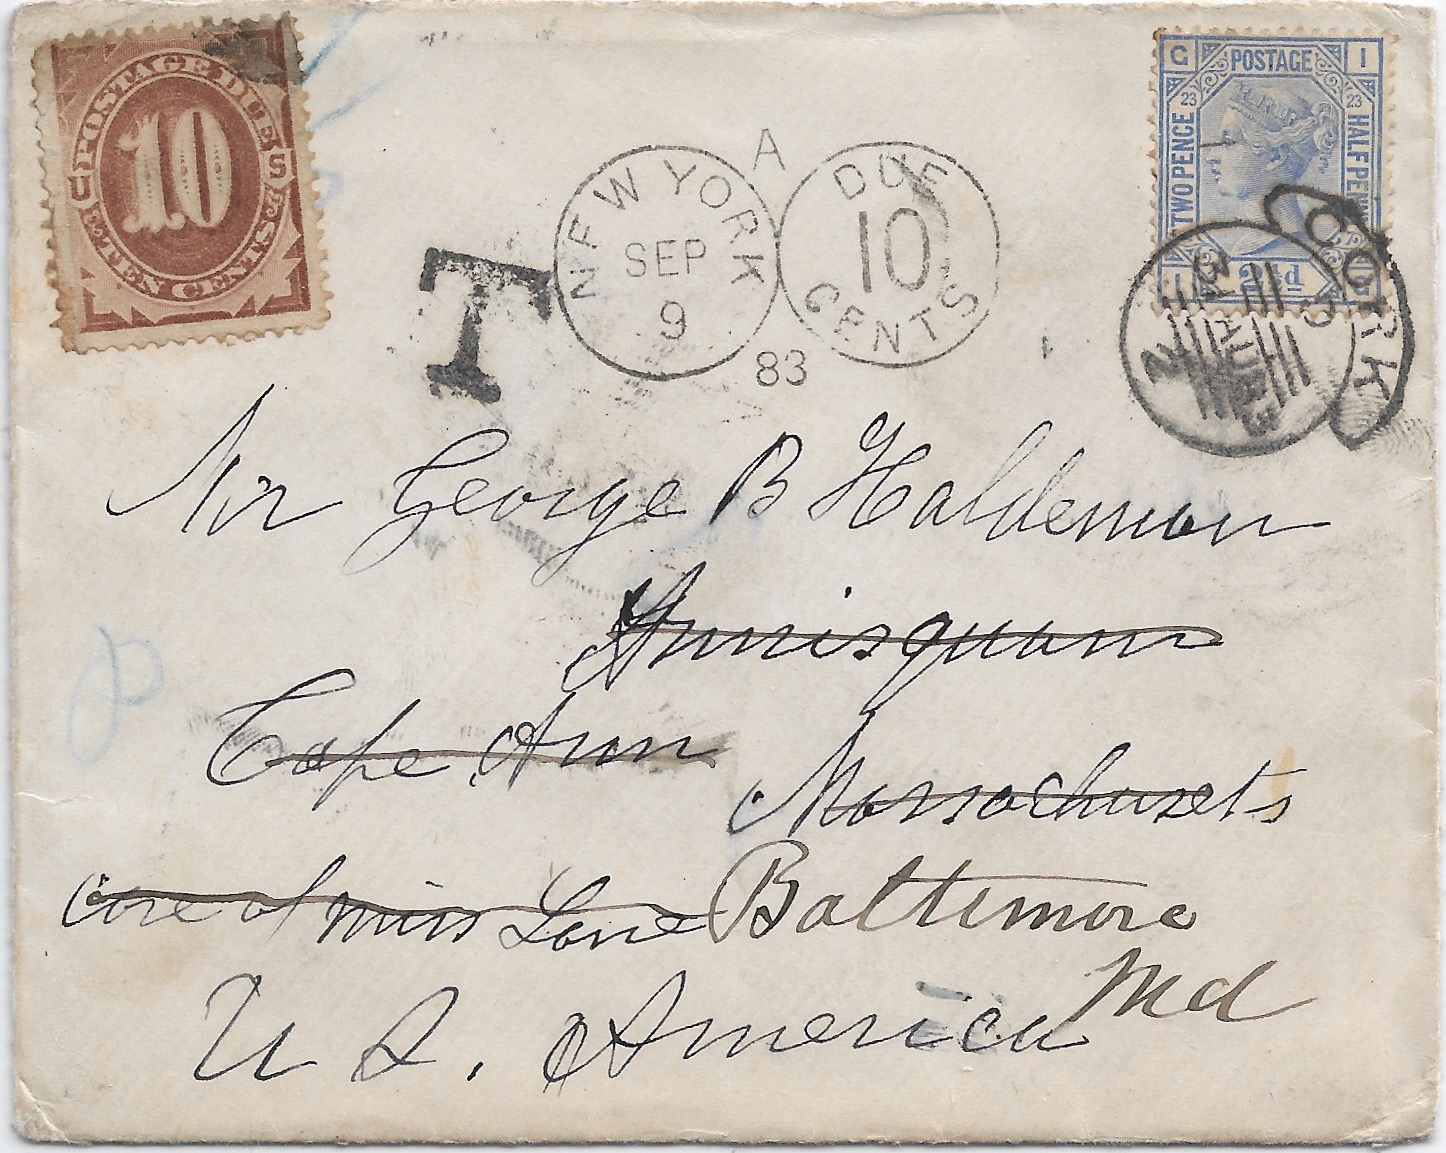 POSTAGE DUE
U 10 S
TEN CENTS
NEW YORK
SEP
9
83
A
DUE
10
CENTS
T
G POSTAGE I
23 23
TWO PENCE HALFPENNY
2½d
CORK
AU
83
Mr George B Haldeman
Annisquam
Cape Ann
Massachusets
care of Miss Lane Baltimore
Md
U S. America